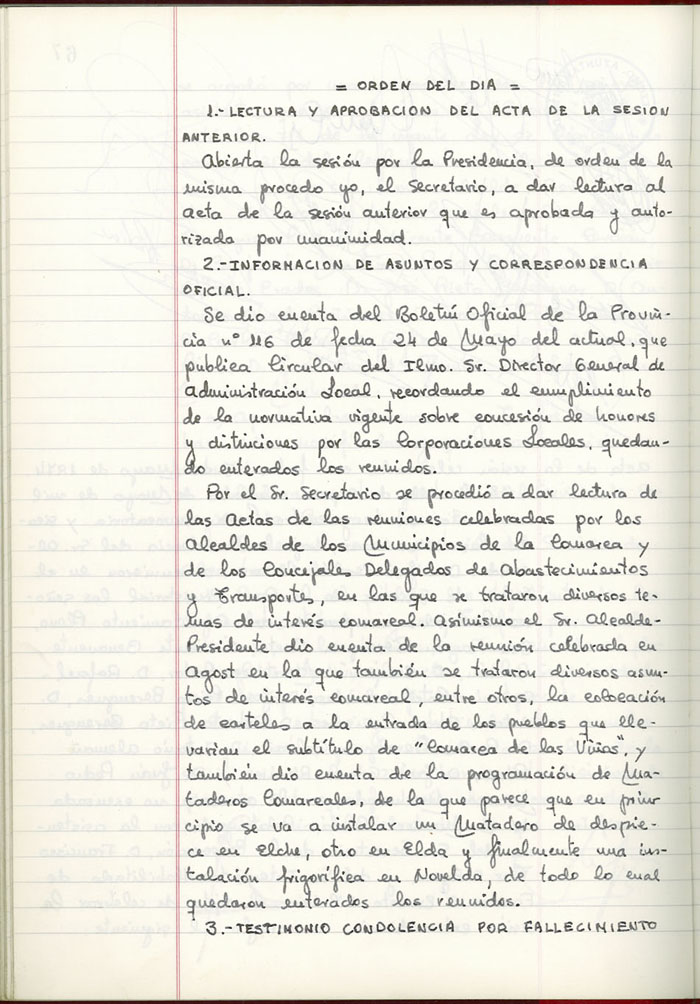 = ORDEN DEL DIA =
1.- LECTURA Y APROBACION DEL ACTA DE LA SESION
ANTERIOR.
Abierta la sesión por la Presidencia, de orden de la
misma procedo yo, el Secretario, a dar lectura al
acta de la sesión anterior que es aprobada y auto-
rizada por unanimidad.
2.- INFORMACION DE ASUNTOS Y CORRESPONDENCIA
OFICIAL.
Se dio cuenta del Boletín Oficial de la Provin-
cia nº 116 de fecha 24 de Mayo del actual, que
publica Circular del Ilmo. Sr. Director General de
Administración Local, recordando el cumplimiento
de la normativa vigente sobre concesión de honores
y distinciones por las Corporaciones Locales, quedan-
do enterados los reunidos.
Por el Sr. Secretario se procedió a dar lectura de
las Actas de las reuniones celebradas por los
Alcaldes de los Municipios de la Comarca y
de los Concejales Delegados de Abastecimientos
y Transportes, en las que se trataron diversos te-
mas de interés comarcal. Asimismo el Sr. Alcalde-
Presidente dio cuenta de la reunión celebrada en
Agost en la que también se trataron diversos asun-
tos de interés comarcal, entre otros, la colocación
de carteles a la entrada de los pueblos que lle-
varian el subtítulo de "Comarca de las Viñas", y
también dio cuenta de la programación de Ma-
taderos Comarcales, de la que parece que en prin-
cipio se va a instalar un Matadero de despie-
ce en Elche, otro en Elda y finalmente una ins-
talación frigorífica en Novelda, de todo lo cual
quedaron enterados los reunidos.
3.- TESTIMONIO CONDOLENCIA POR FALLECIMIENTO